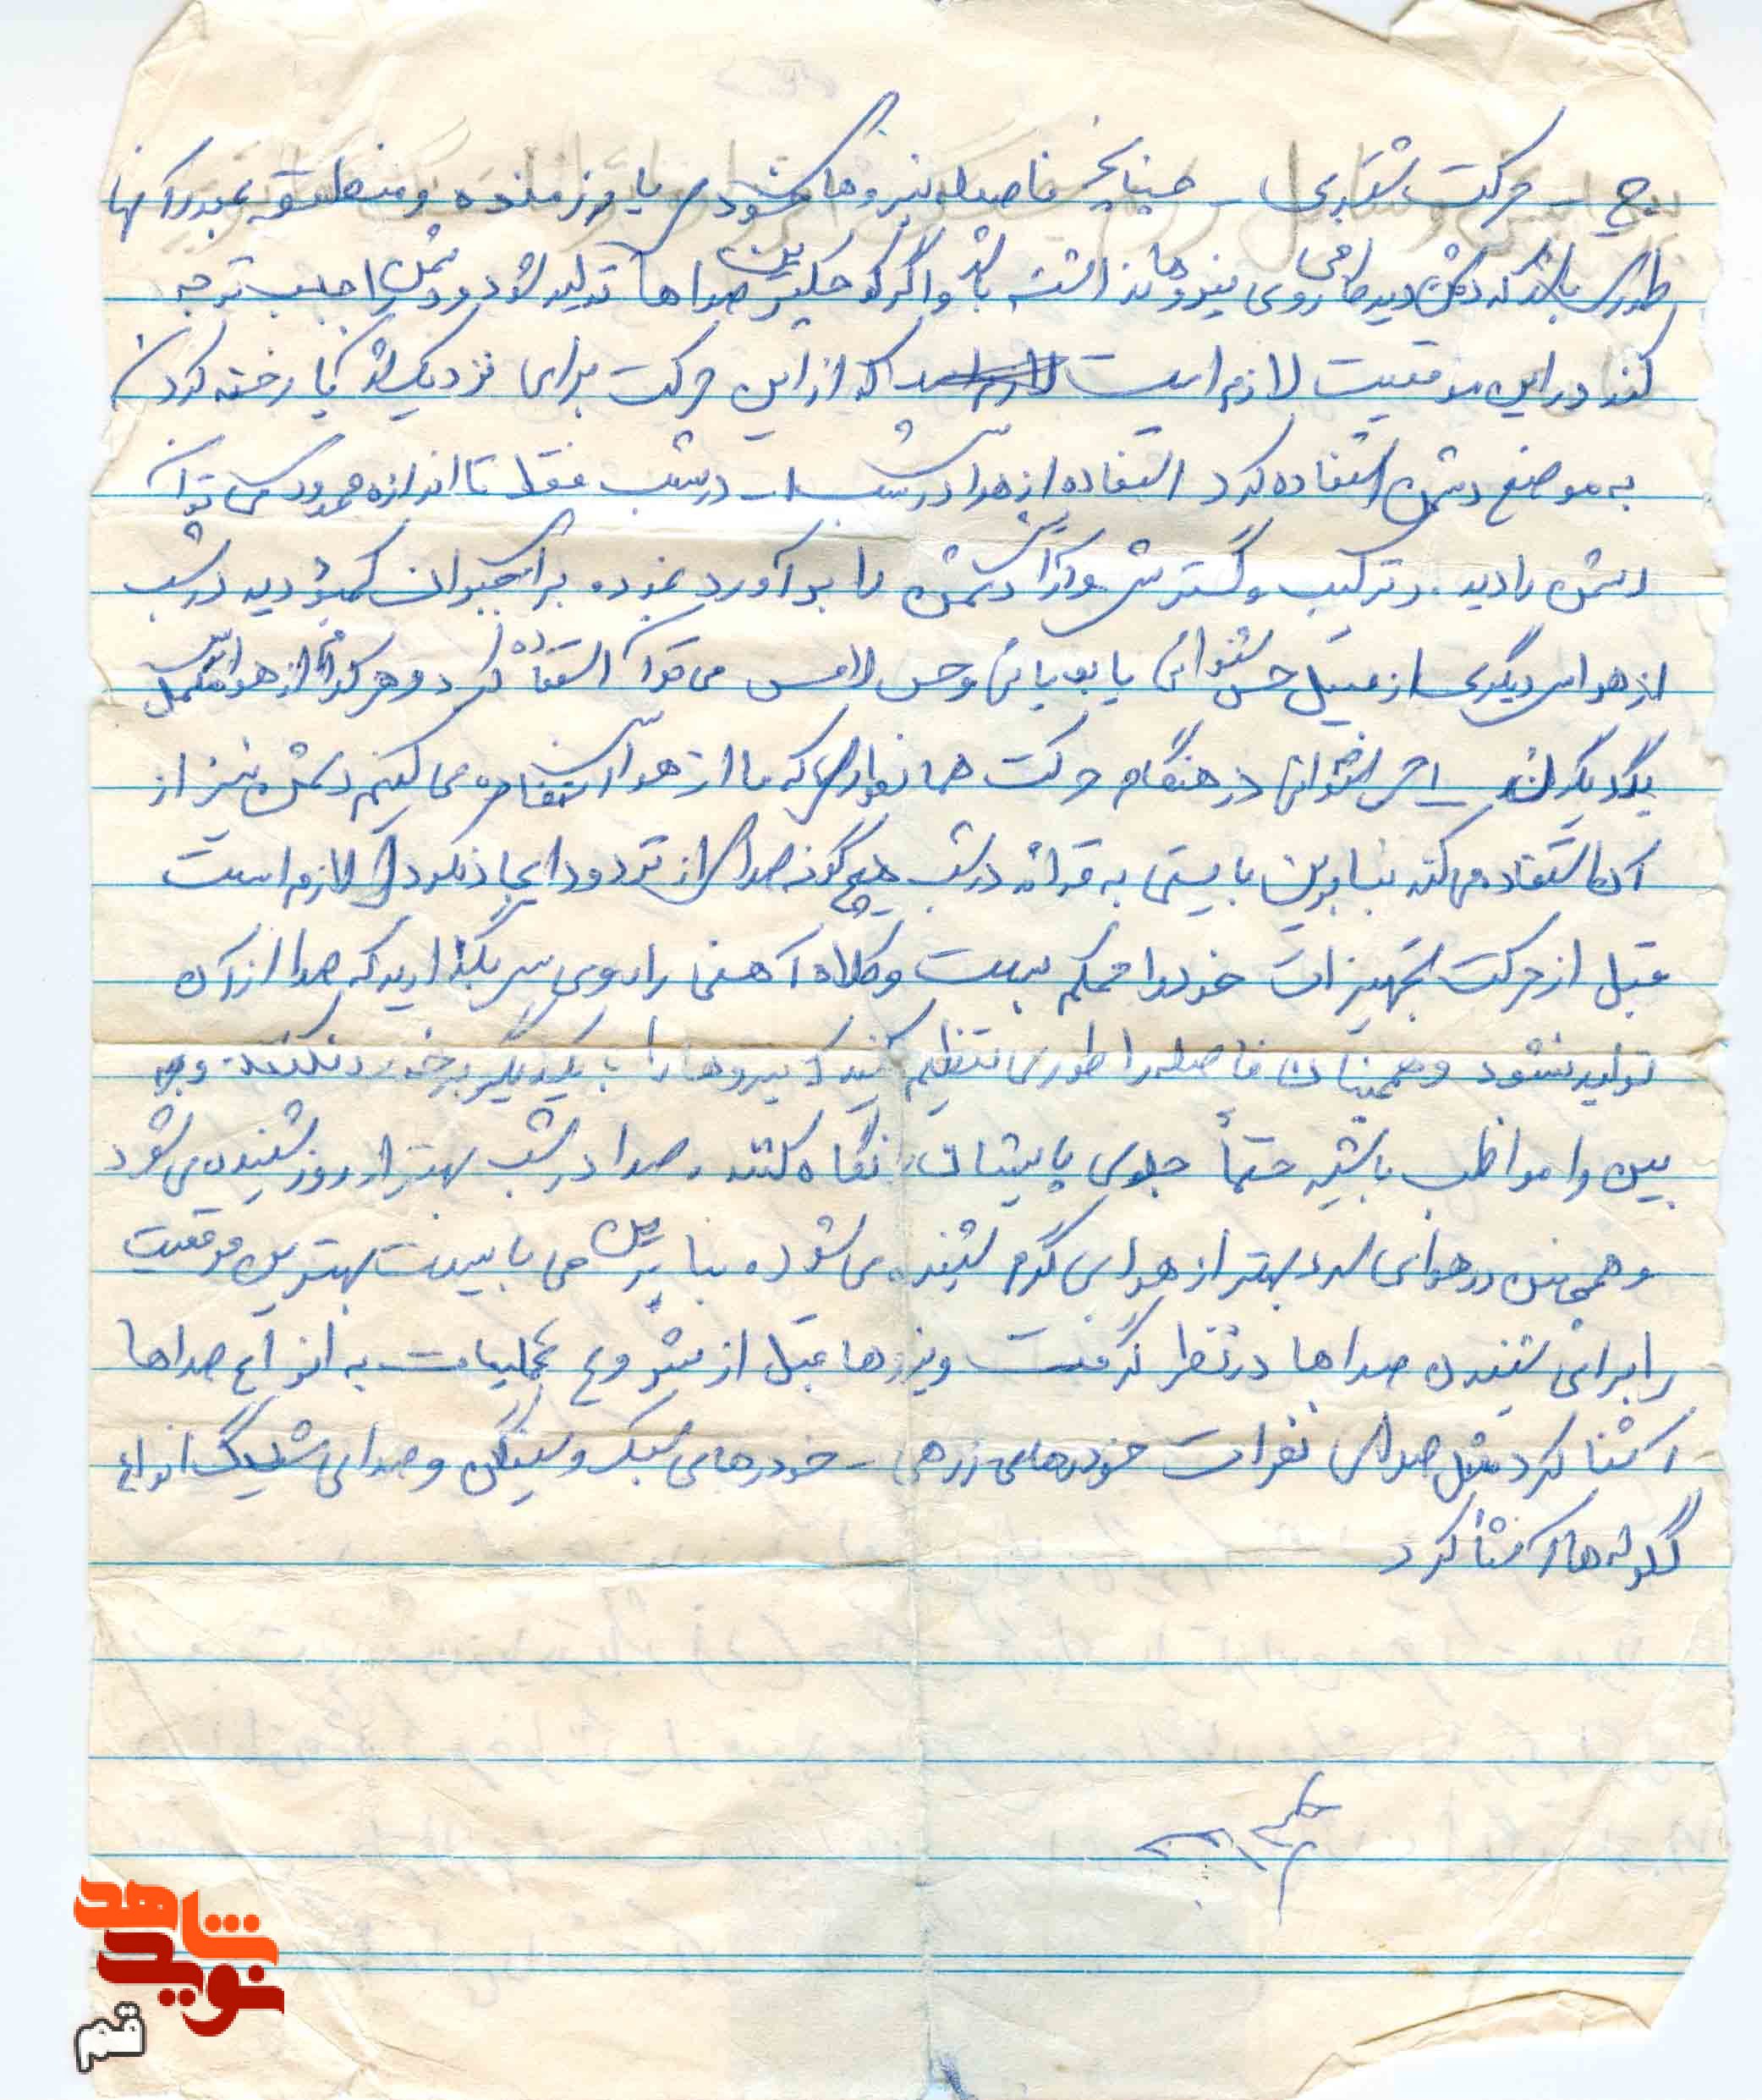 ج - حرکت شتری - چنانچه فاصله نیروها خودی با رزمنده و منطقه عبور آنها
طوری باشد که دشمن دید کامی روی نیروها نداشته باشد و اگر کوچکترین صداها تولید شود دشمن را جلب توجه
کند در این موقعیت لازم است که از این حرکت برای نزدیک شدن یا رخنه کردن
به موضع دشمن استفاده کرد استفاده از هوا در شب - در شب فقط تا اندازه محدودی توان
دشمن را دید و ترکیب و گسترش و آرایش دشمن را برآورد نموده برای جبران کمبود دید در شب
از حواس دیگری از قبیل حس شنوائی یا بویائی و حس لامس می توان استفاده کرد و هر کدام از حواس مکمل
یکدیگرند - شنوائی در هنگام حرکت همانطوری که ما از حواس استفاده می کنیم دشمن نیز از
آن استفاده می کند بنابرین بایستی به قرائد در شب هیچ گونه صدای از تردد و ایجاد نکود لازم است
قبل از حرکت تجهیزات خود را محکم ببست و کلاه آهنی را روی سر بگذارید که صدا از آن
تولید نشود و همچنان فاصله را طوری تنظیم کنید که نیروها را با یکدیگر برخورد نکنند و به
بین وا مواظب باشید حتماً جلوی پایشان را نگاه کنند . صدا در شب بهتر از روز شنیده می شود
و همچنین در هوای سرد بهتر از هوای گرم شنیده می شود بنابرین می بایست بهترین موقعیت
را برای شنیدن صداها در نظر گرفت و نیروها قبل از شروع عملیات به انواع صداها
آشنا کرد مثل صدای نفرات خودرهای زرهی - خودرهای سبک و سنگین و صدای شلیک انواع
گلوله ها آشنا کرد
شاهد
نوید
قم